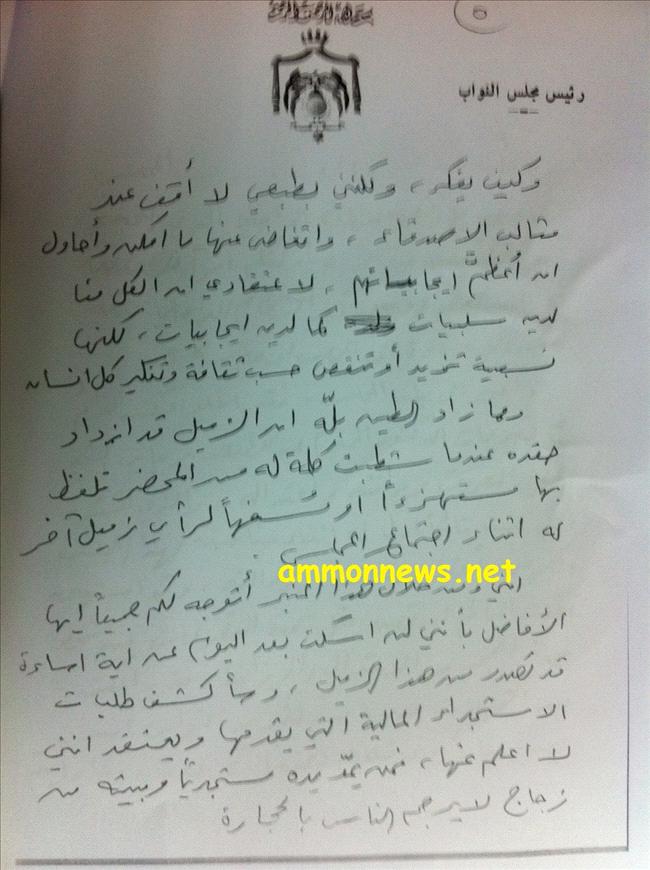 بسم الله الرحمن الرحيم
٥
رئيس مجلس النواب
وكيف يفكر، ولكنني بطبعي لا أقف عند
مثالب الأصدقاء، واتغاضى عنها ما أمكن وأحاول
ان أعظّم ايجابياتهم، لاعتقادي ان الكل منا
لديه سلبيات كما لديه ايجابيات، لكنها
نسبية تزيد أو تنقص حسب ثقافة وتفكير كل انسان
ومما زاد الطين بلّه ان الزميل قد ازداد
حقده عندما شطبت كلمة له من المحضر تلفظ
بها مستهزءاً او مُسفهاً لرأي زميل آخر
له اثناء اجتماع المجلس.
ammonnews.net
انني ومن خلال هذا المنبر أتوجه لكم جميعاً ايها
الأفاضل بأنني لن اسكت بعد اليوم عن اية اساءة
قد تصدر من هذا الزميل، وسأكشف طلبات
الاستجداء المالية التي يقدمها ويعتقد انني
لا اعلم عنها، فمن يمدّ يده مستجدياً وبيته من
زجاج لا يرجم الناس بالحجارة